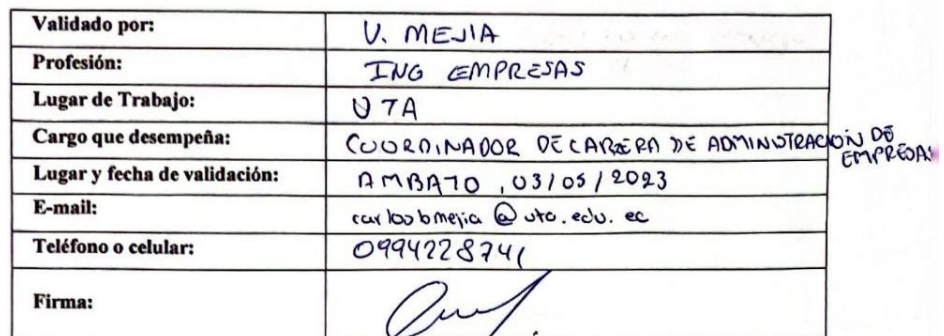 Validado por: V. MEJIA
Profesión: ING EMPRESAS
Lugar de Trabajo: UTA
Cargo que desempeña: COORDINADOR DE CARRERA DE ADMINISTRACIÓN DE EMPRESAS
Lugar y fecha de validación: AMBATO, 03/05/2023
E-mail: carlosbmejia@uta.edu.ec
Teléfono o celular: 0994228741
Firma: